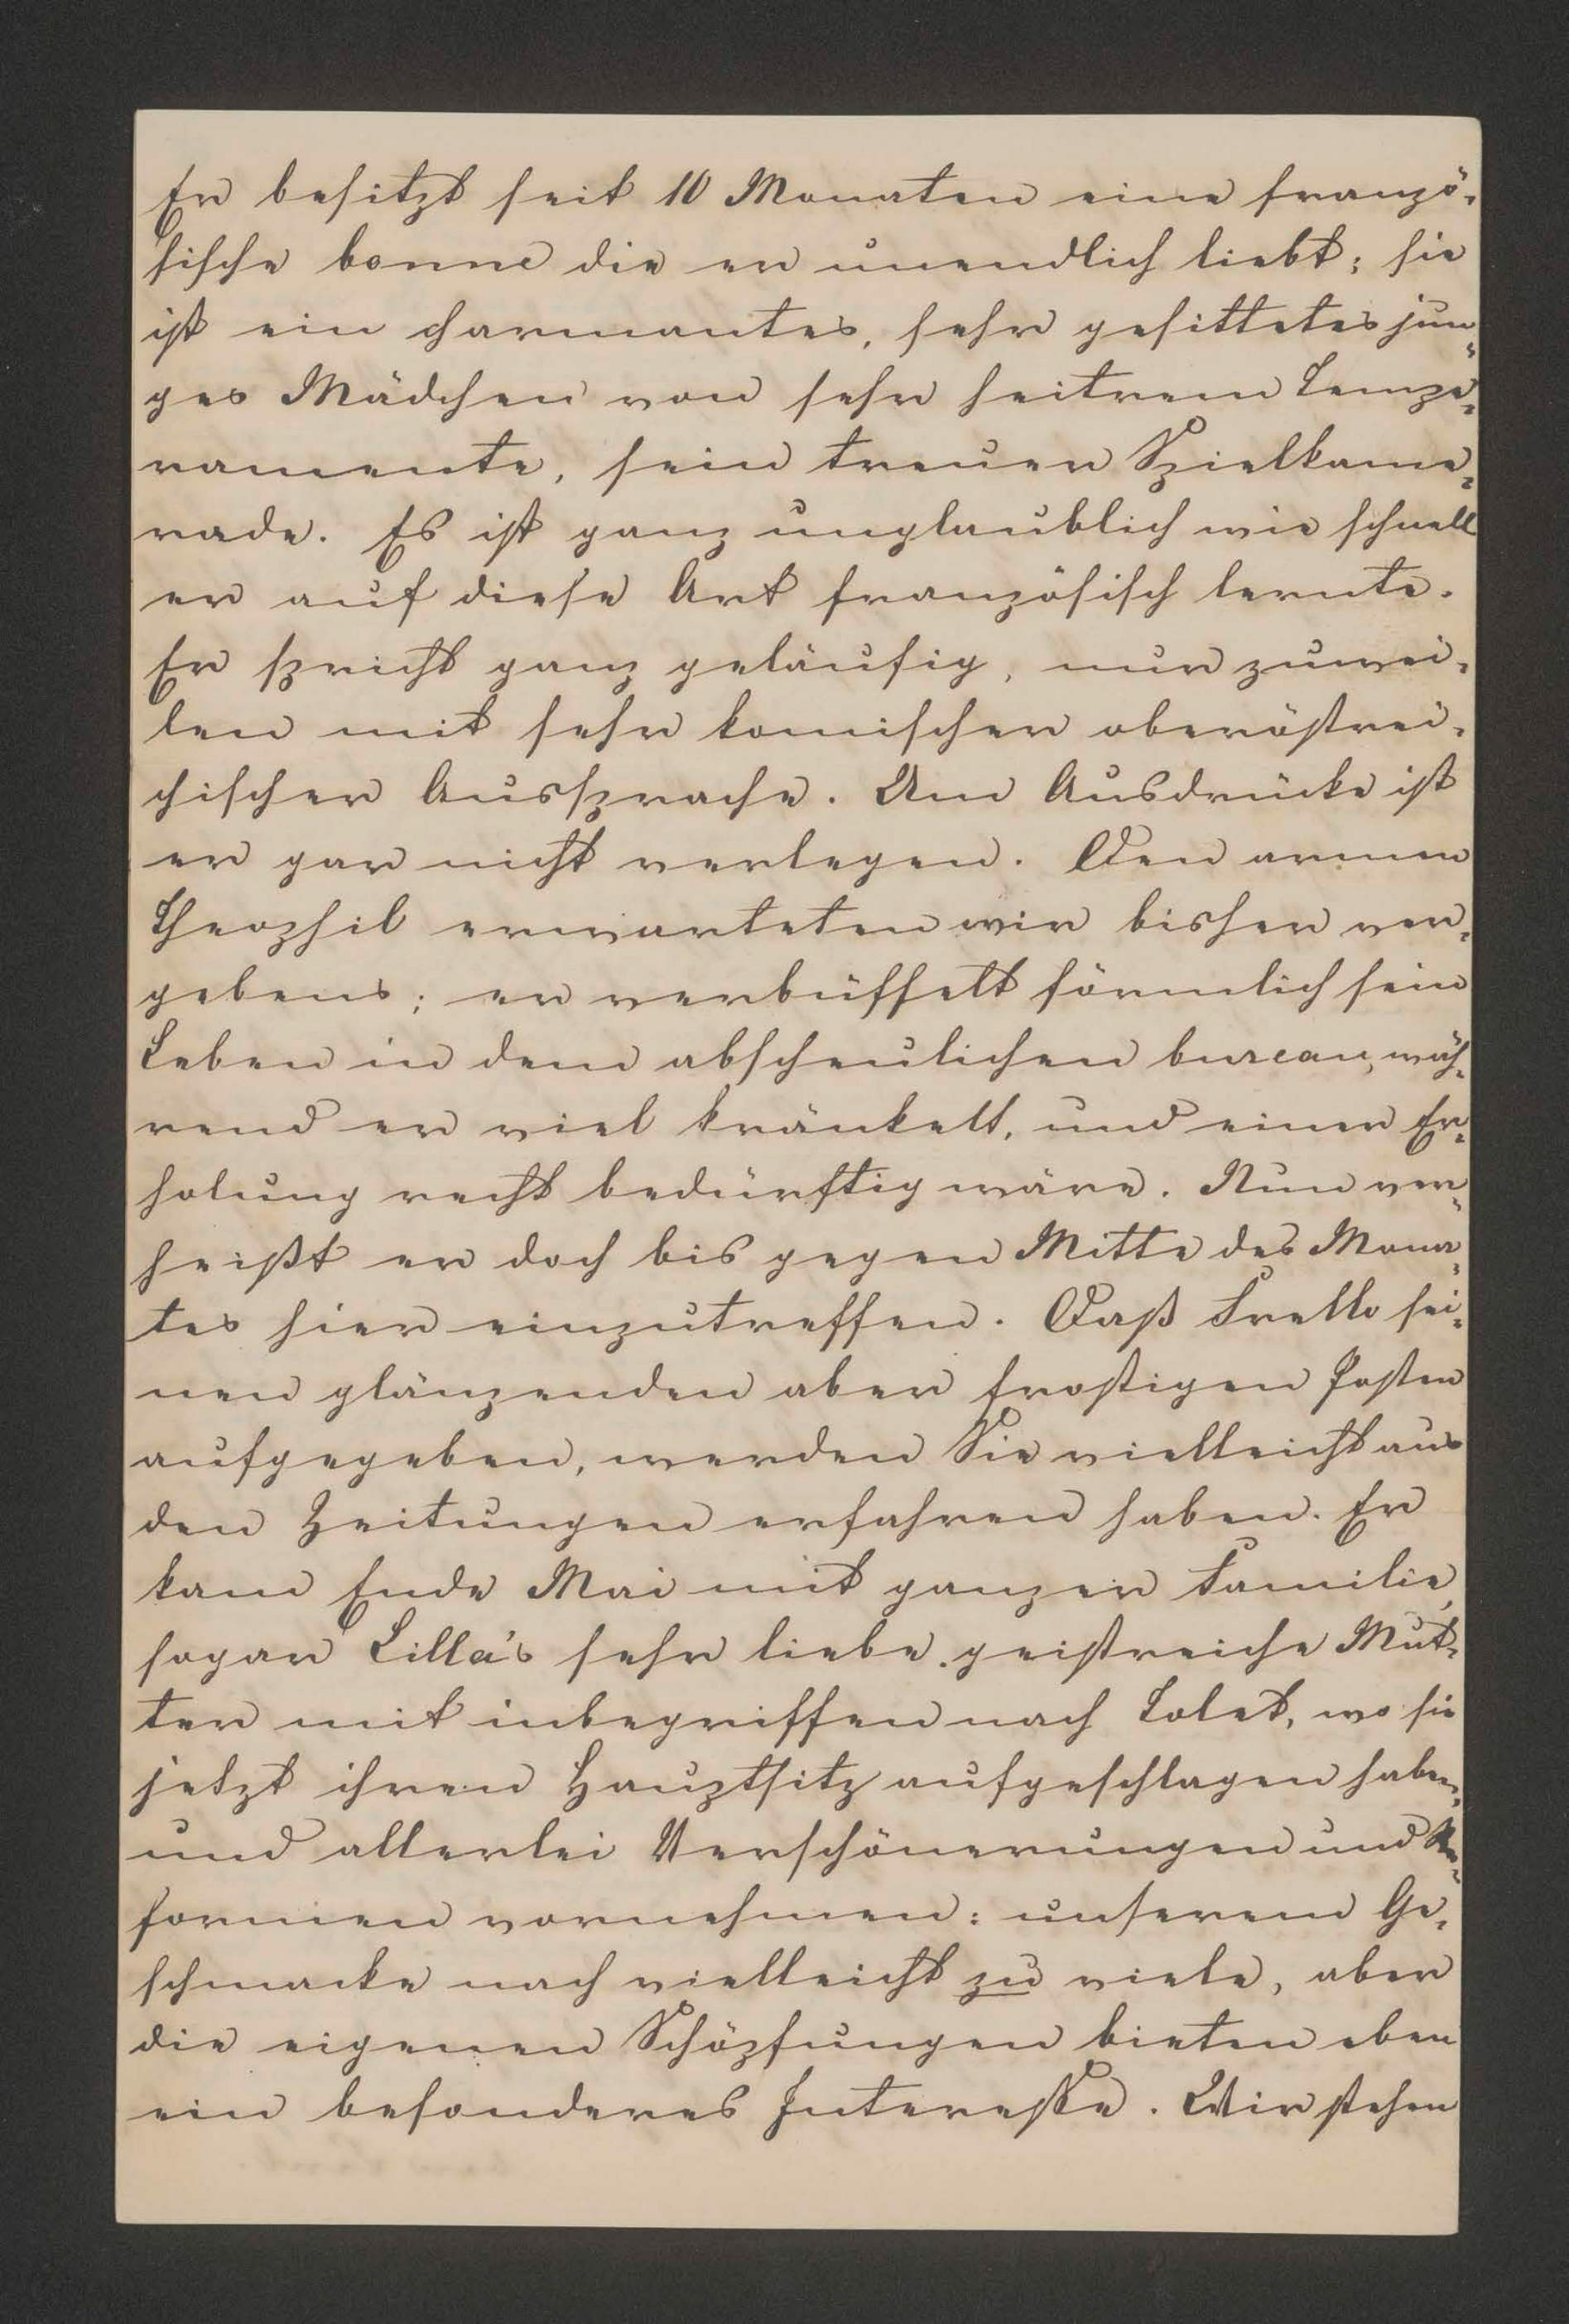 Er besitzt seit 10 Monaten eine franzö-
sische bonne die er unendlich liebt; sie
ist ein charmantes, sehr gesittetes jun-
ges Mädchen von sehr heitrem Tempe-
ramente, sein treuer Spielkame-
rade. Es ist ganz unglaublich wie schnell
er auf diese Art französisch lernte.
Er spricht ganz geläufig, nur zuwei-
len mit sehr komischer oberöstrei-
chischer Aussprache. Um Ausdrücke ist
er gar nicht verlegen. Den armen
Theophil erwarteten wir bisher ver-
gebens; er verbüffelt förmlich sein
Leben in dem abscheulichen bureau, wäh-
rend er viel kränkelt, und einer Er-
holung recht bedürftig wäre. Nun ver-
heißt er doch bis gegen Mitte des Mona-
tes hier einzutreffen. Daß Frello sei-
nen glänzenden aber frostigen Posten
aufgegeben, werden Sie vielleicht aus
den Zeitungen erfahren haben. Er
kam Ende Mai mit ganzer Familie,
sogar Lilla's sehr liebe geistreiche Mut-
ter mit inbegriffen nach Tolet, wo sie
jetzt ihren Hauptsitz aufgeschlagen haben,
und allerlei Verschönerungen und Re-
formen vornehmen: unserem Ge-
schmacke nach vielleicht zu viele, aber
die eigenen Schöpfungen bieten eben
ein besonderes Interesse. Wir stehen